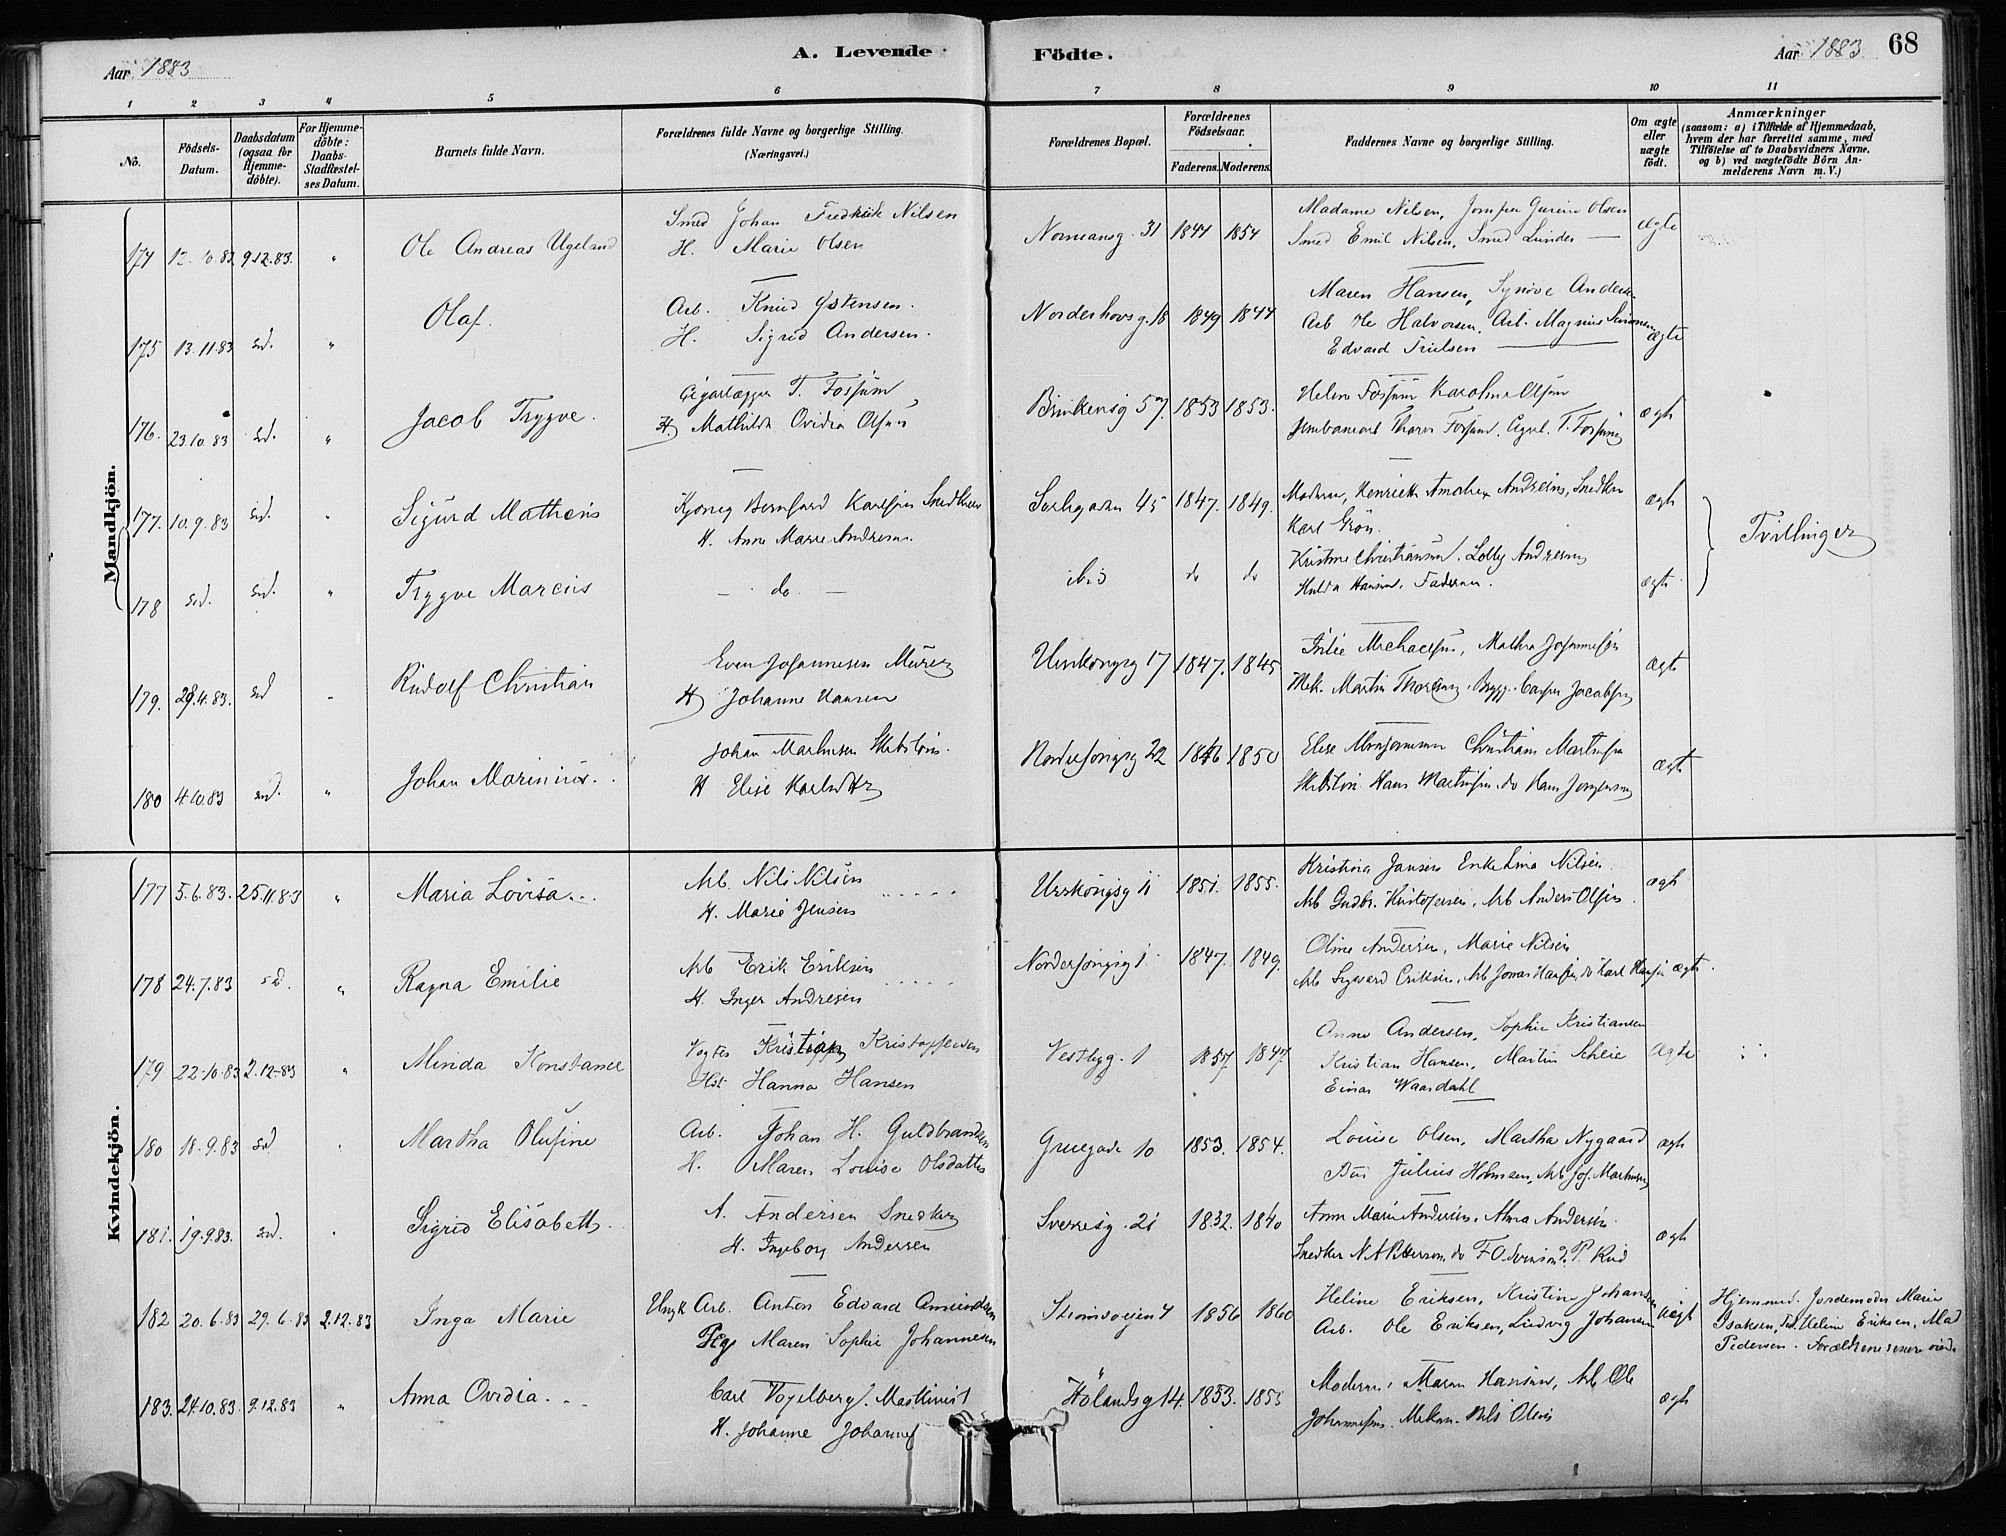 Aar 1883
A. Levende
Födte.
Aar 1883.
68
1 2 3 4 5 6 7 8 9 10 11
No.
Födsels-
Datum.
Daabsdatum
(ogsaa for
Hjemme-
döbte).
For Hjemme-
döbte:
Daabs-
Stadfæstel-
ses Datum.
Barnets fulde Navn.
Forældrenes fulde Navne og borgerlige Stilling.
(Næringsvei.)
Forældrenes Bopæl.
Forældrenes
Födselsaar.
Faderens. Moderens.
Faddernes Navne og borgerlige Stilling.
Om ægte
eller
uægte
födt.
Anmærkninger
(saasom: a) i Tilfælde af Hjemmedaab,
hvem der har forrettet samme, med
Tilföielse af to Daabsvidners Navne.
og b) ved uægtefödte Börn An-
melderens Navn m. V.)
Mandkjön.
Smed Johan Fredrik Nilsen
174 12.10.83 9.12.83. " Ole Andreas Ugeland
H. Marie Olsen
Normansg. 31 1844 1854
Madame Nilsen, Olsen
Smed Emil Nilsen, Smed Lunder
ægte
175 13.11.83 sd. " Olaf.
Arb. Knud Østensen.
H. Sigrid Andersen.
Norderhovsg. 18 1849 1844
Maren Hansen, Synöve Anders
Arb Ole Halvorsen. Arb. Magnus
Edvard Trulsen
ægte
176. 23.10.83 sd. " Jacob Trygve.
T. Fossum
H. Mathilde Ovidia Olsen
Brinkensg 57. 1853 1853.
Helene Fossum Karoline Olsen
Fossum. T. Fossum
ægt
177. 10.9.83 sd. " Sigurd Matheus
Bernhard Karlsen Snedker
H. Anne Marie Andresen
45 1847. 1849.
Moderen, Henriette Andrews, Snedker
Karl Grön.
ægt
Tvillinger
178 sd. sd. " Trygve Marcus
do
ibid do do
Kristine Christiansen. Andresen
Hulda Hansen, Faderen.
ægte
179. 29.4.83. sd Rudolf Christian
Even Johannesen Murer
H Johanne Hansen
Urskougsg 17 1847. 1845
Michaelsen, Mathea Johannesen
Mek. Martin Bryg. Casper Jacobsen
ægt
180 4.10.83 sd. " Johan Marinius.
Johan Martinsen
H Elise Karlsdtr
22 1846 1850
Elise Christiane Martinsen
Hans Martinsen. do Hans Jorgensen
ægt
Kvindekjön.
177 5.6.83. 25.11.83 " Maria Lovisa.
Arb. Nils Nilsen
H. Marie Jensen
Urskougsg 11 1851. 1855.
Kristina Jansen Enke Lina Nilsen.
Arb Gudbr. Kristofersen, Arb Anders Olsen.
ægt
178 24.7.83 sd. " Ragna Emilie
Arb Erik Eriksen
H. Inger Andresen
1 1847. 1849.
Oline Andersen, Marie Nilsen
Arb Sigvard Eriksen, Arb Jonas Hansen, do Karl Hansen
ægt.
179 22.10.83 2.12.83 " Minda Konstance
Vogter Kristian Kristoffersen
Hst. Hanna Hansen
Vestbyg. 1 1857 1847
Anne Andersen, Sophie Kristiansen
Kristian Hansen, Martin Scheie
Einar Waardahl
Ægte
180 18.9.83 sd Martha Olufine
Arb. Johan H. Guldbrandsen
H. Maren Louise Olsdatter
Gruegade 10 1853. 1854.
Louise Olsen, Martha Nygaard
Julius Holmsen, Arb Joh. Martinsen
ægt
181. 19.9.83. sd. Sigrid Elisabeth.
A. Andersen Snedker
H. Ingeborg Andersen
Sverresg. 21 1832. 1840
Anne Marie Andersen. Alma Andersen.
Snedker N A Pettersen, do F O Svensen P. Rud
ægt
182 20.6.83 29.6.83 2.12.83 Inga Marie
Ungk Arb. Anton Edvard Amundsen
Pig Maren Sophie Johannesen
Strömsveien 4 1856 1860
Heline Eriksen, Kristine Johansen
Arb. Ole Eriksen, Ludvig Johansen
uægt
Hjemmed. Jordemoder Marie
Isaksen, Heline Eriksen, Mad
Pedersen. Forældrene senere viede
183. 24.10.83. 9.12.83 " Anna Ovidia
Carl Vogelberg. Maskinist
H. Johanne
Hölandsg 14. 1853. 1855
Moderen, Maren Hansen, Arb Ole
Johannesen. Mekan. Nils Olsen
ægt